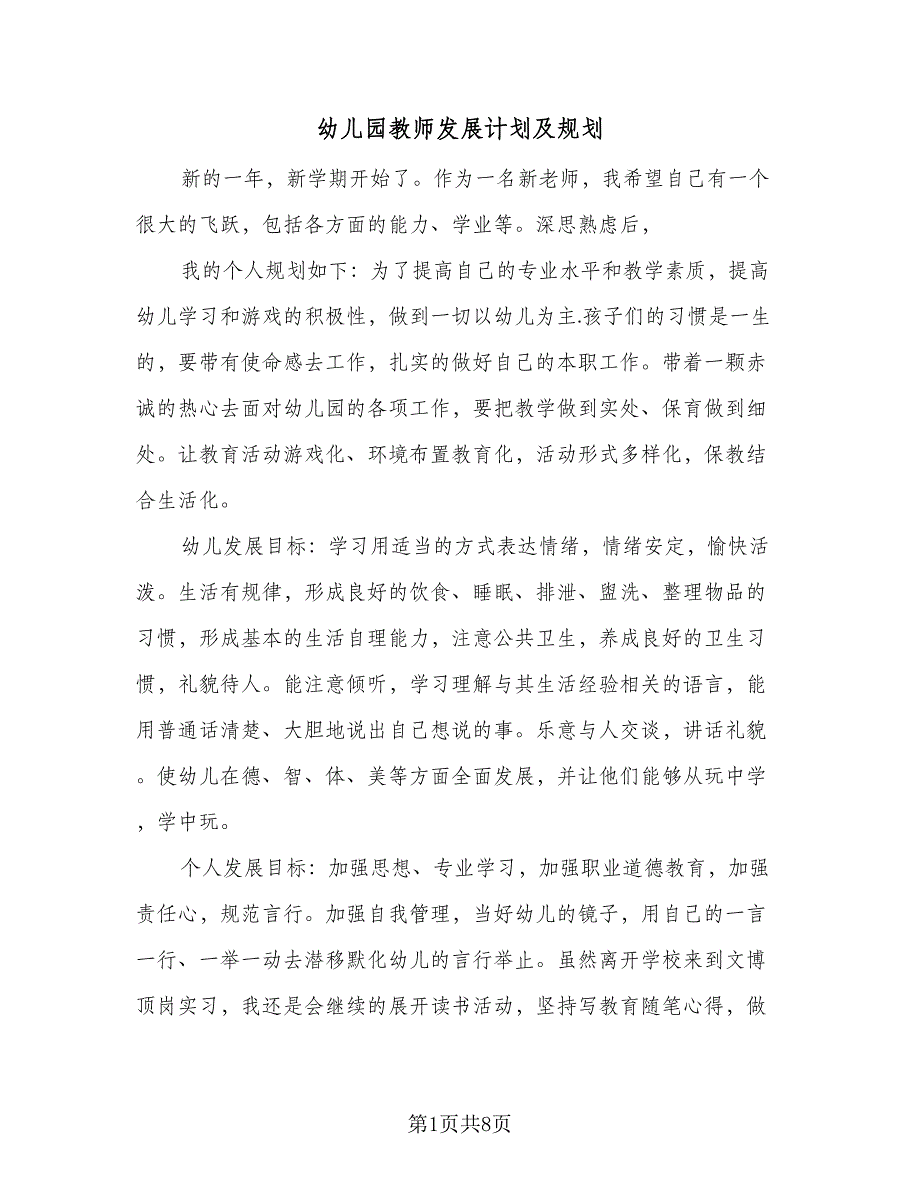 幼儿园教师发展计划及规划
新的一年，新学期开始了。作为一名新老师，我希望自己有一个
很大的飞跃，包括各方面的能力、学业等。深思熟虑后，
我的个人规划如下：为了提高自己的专业水平和教学素质，提高
幼儿学习和游戏的积极性，做到一切以幼儿为主.孩子们的习惯是一生
的，要带有使命感去工作，扎实的做好自己的本职工作。带着一颗赤
诚的热心去面对幼儿园的各项工作，要把教学做到实处、保育做到细
处。让教育活动游戏化、环境布置教育化，活动形式多样化，保教结
合生活化。
幼儿发展目标：学习用适当的方式表达情绪，情绪安定，愉快活
泼。生活有规律，形成良好的饮食、睡眠、排泄、盥洗、整理物品的
习惯，形成基本的生活自理能力，注意公共卫生，养成良好的卫生习
惯，礼貌待人。能注意倾听，学习理解与其生活经验相关的语言，能
用普通话清楚、大胆地说出自己想说的事。乐意与人交谈，讲话礼貌
。使幼儿在德、智、体、美等方面全面发展，并让他们能够从玩中学
，学中玩。
个人发展目标：加强思想、专业学习，加强职业道德教育，加强
责任心，规范言行。加强自我管理，当好幼儿的镜子，用自己的一言
一行、一举一动去潜移默化幼儿的言行举止。虽然离开学校来到文博
顶岗实习，我还是会继续的展开读书活动，坚持写教育随笔心得，做
第1页共8页